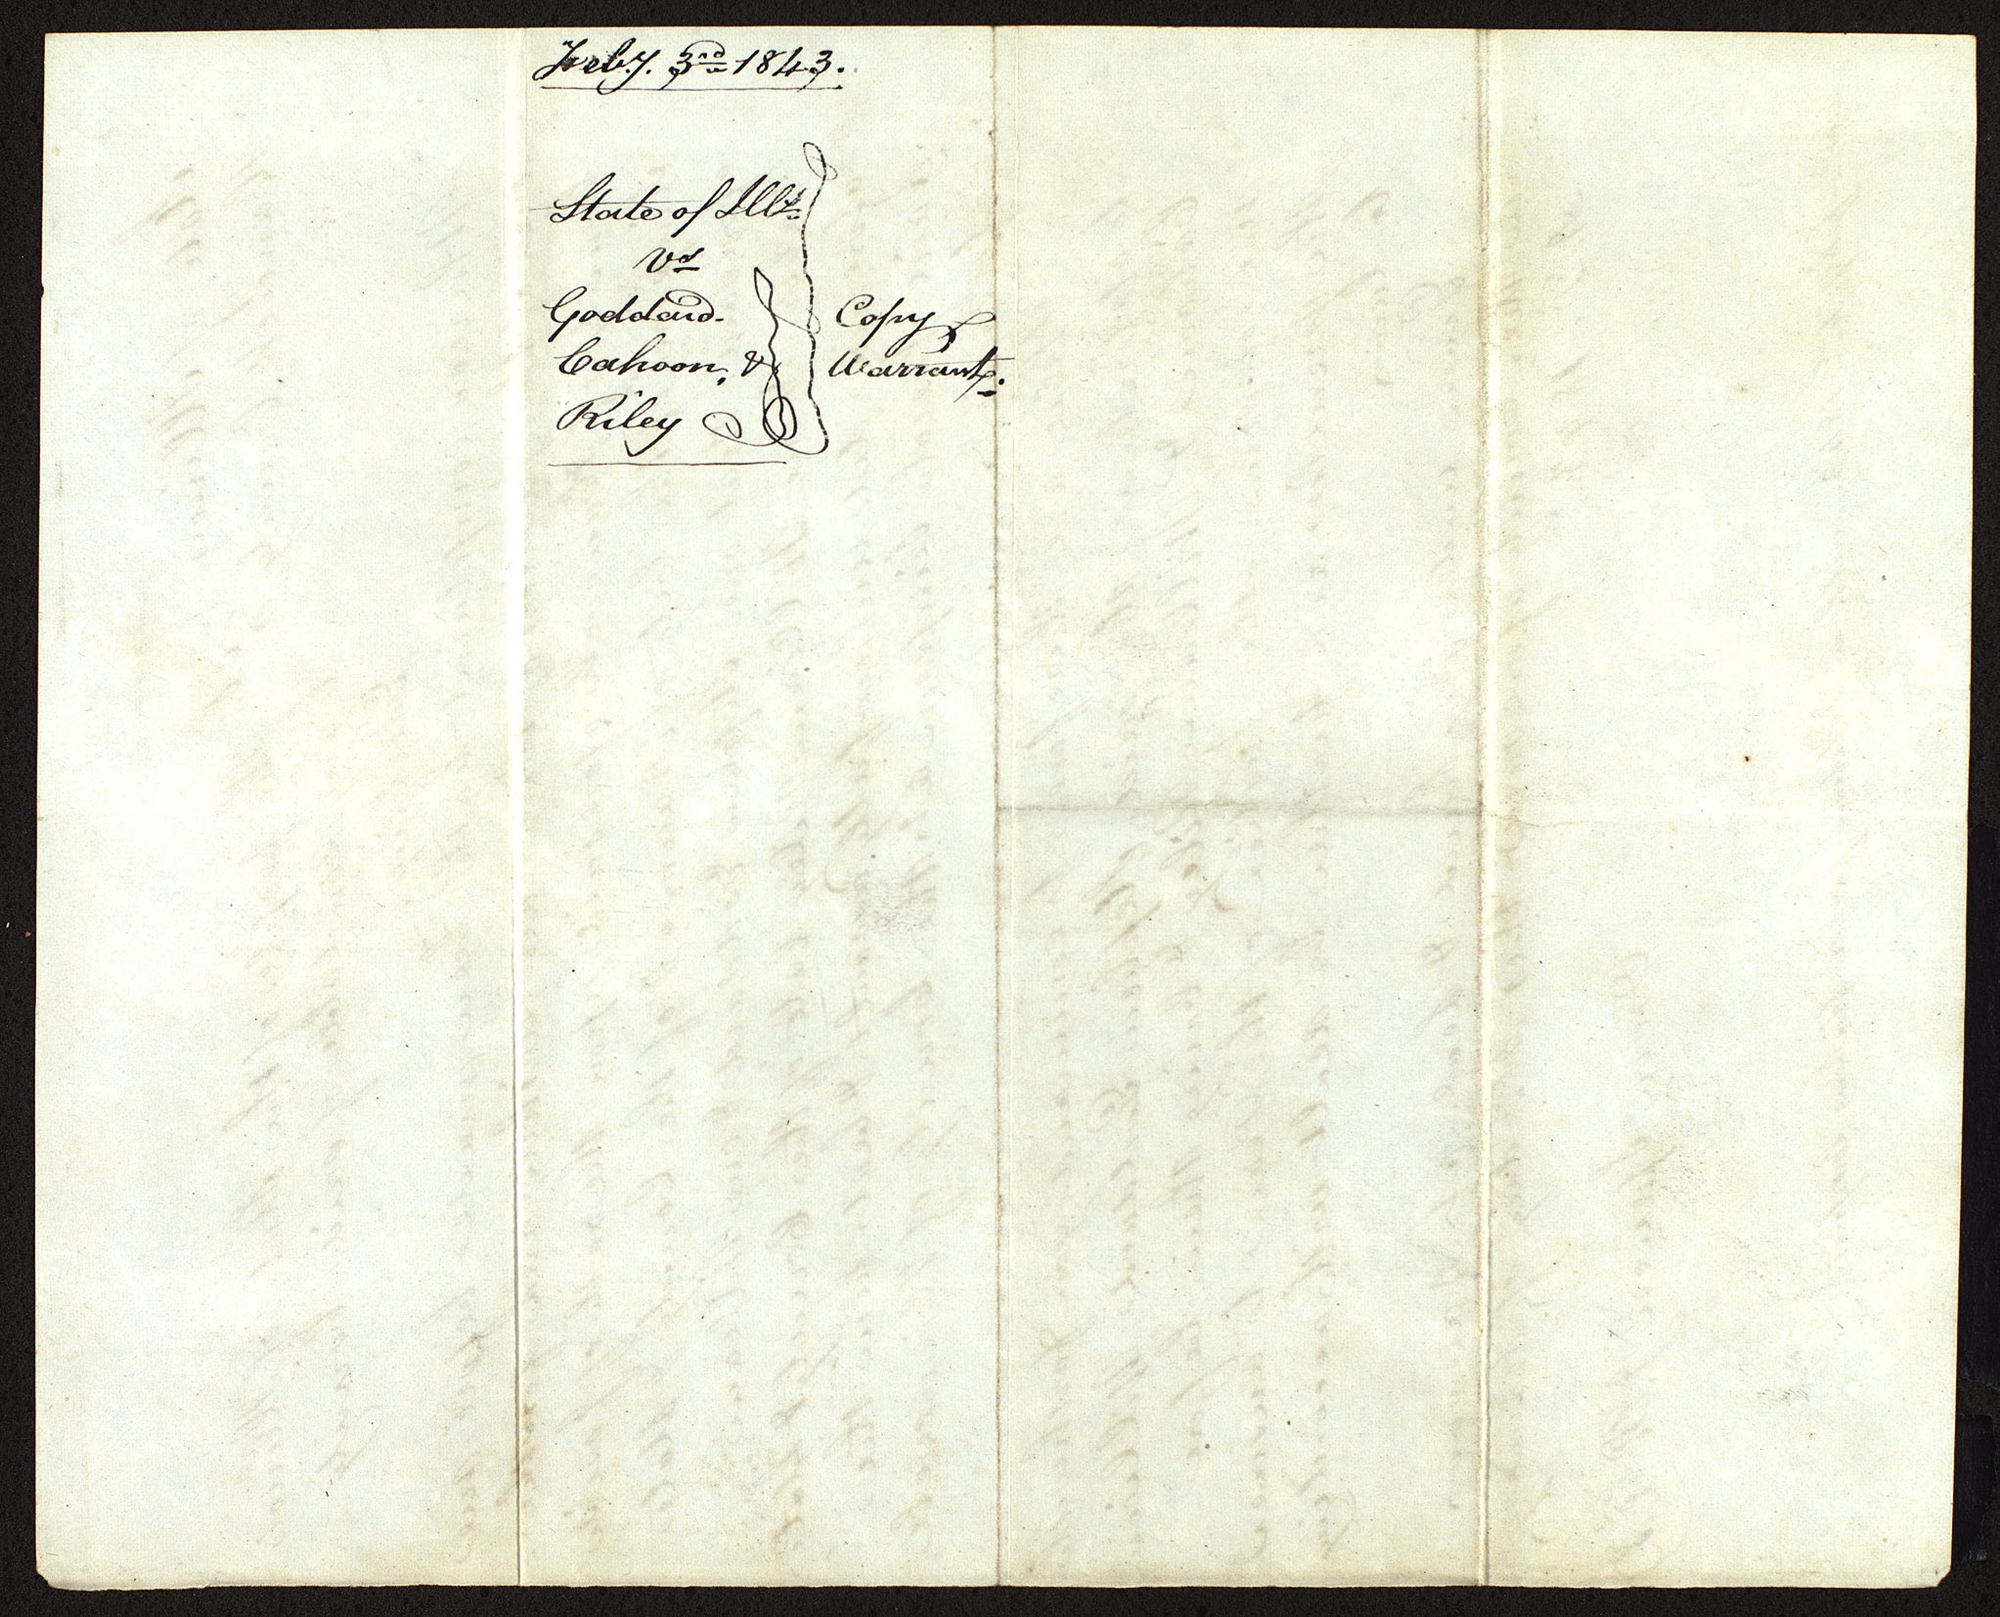 Feby. 3rd 1843.
State of Ills.
vs
Goddard.
Cahoon, &
Riley
Copy
Warrant.